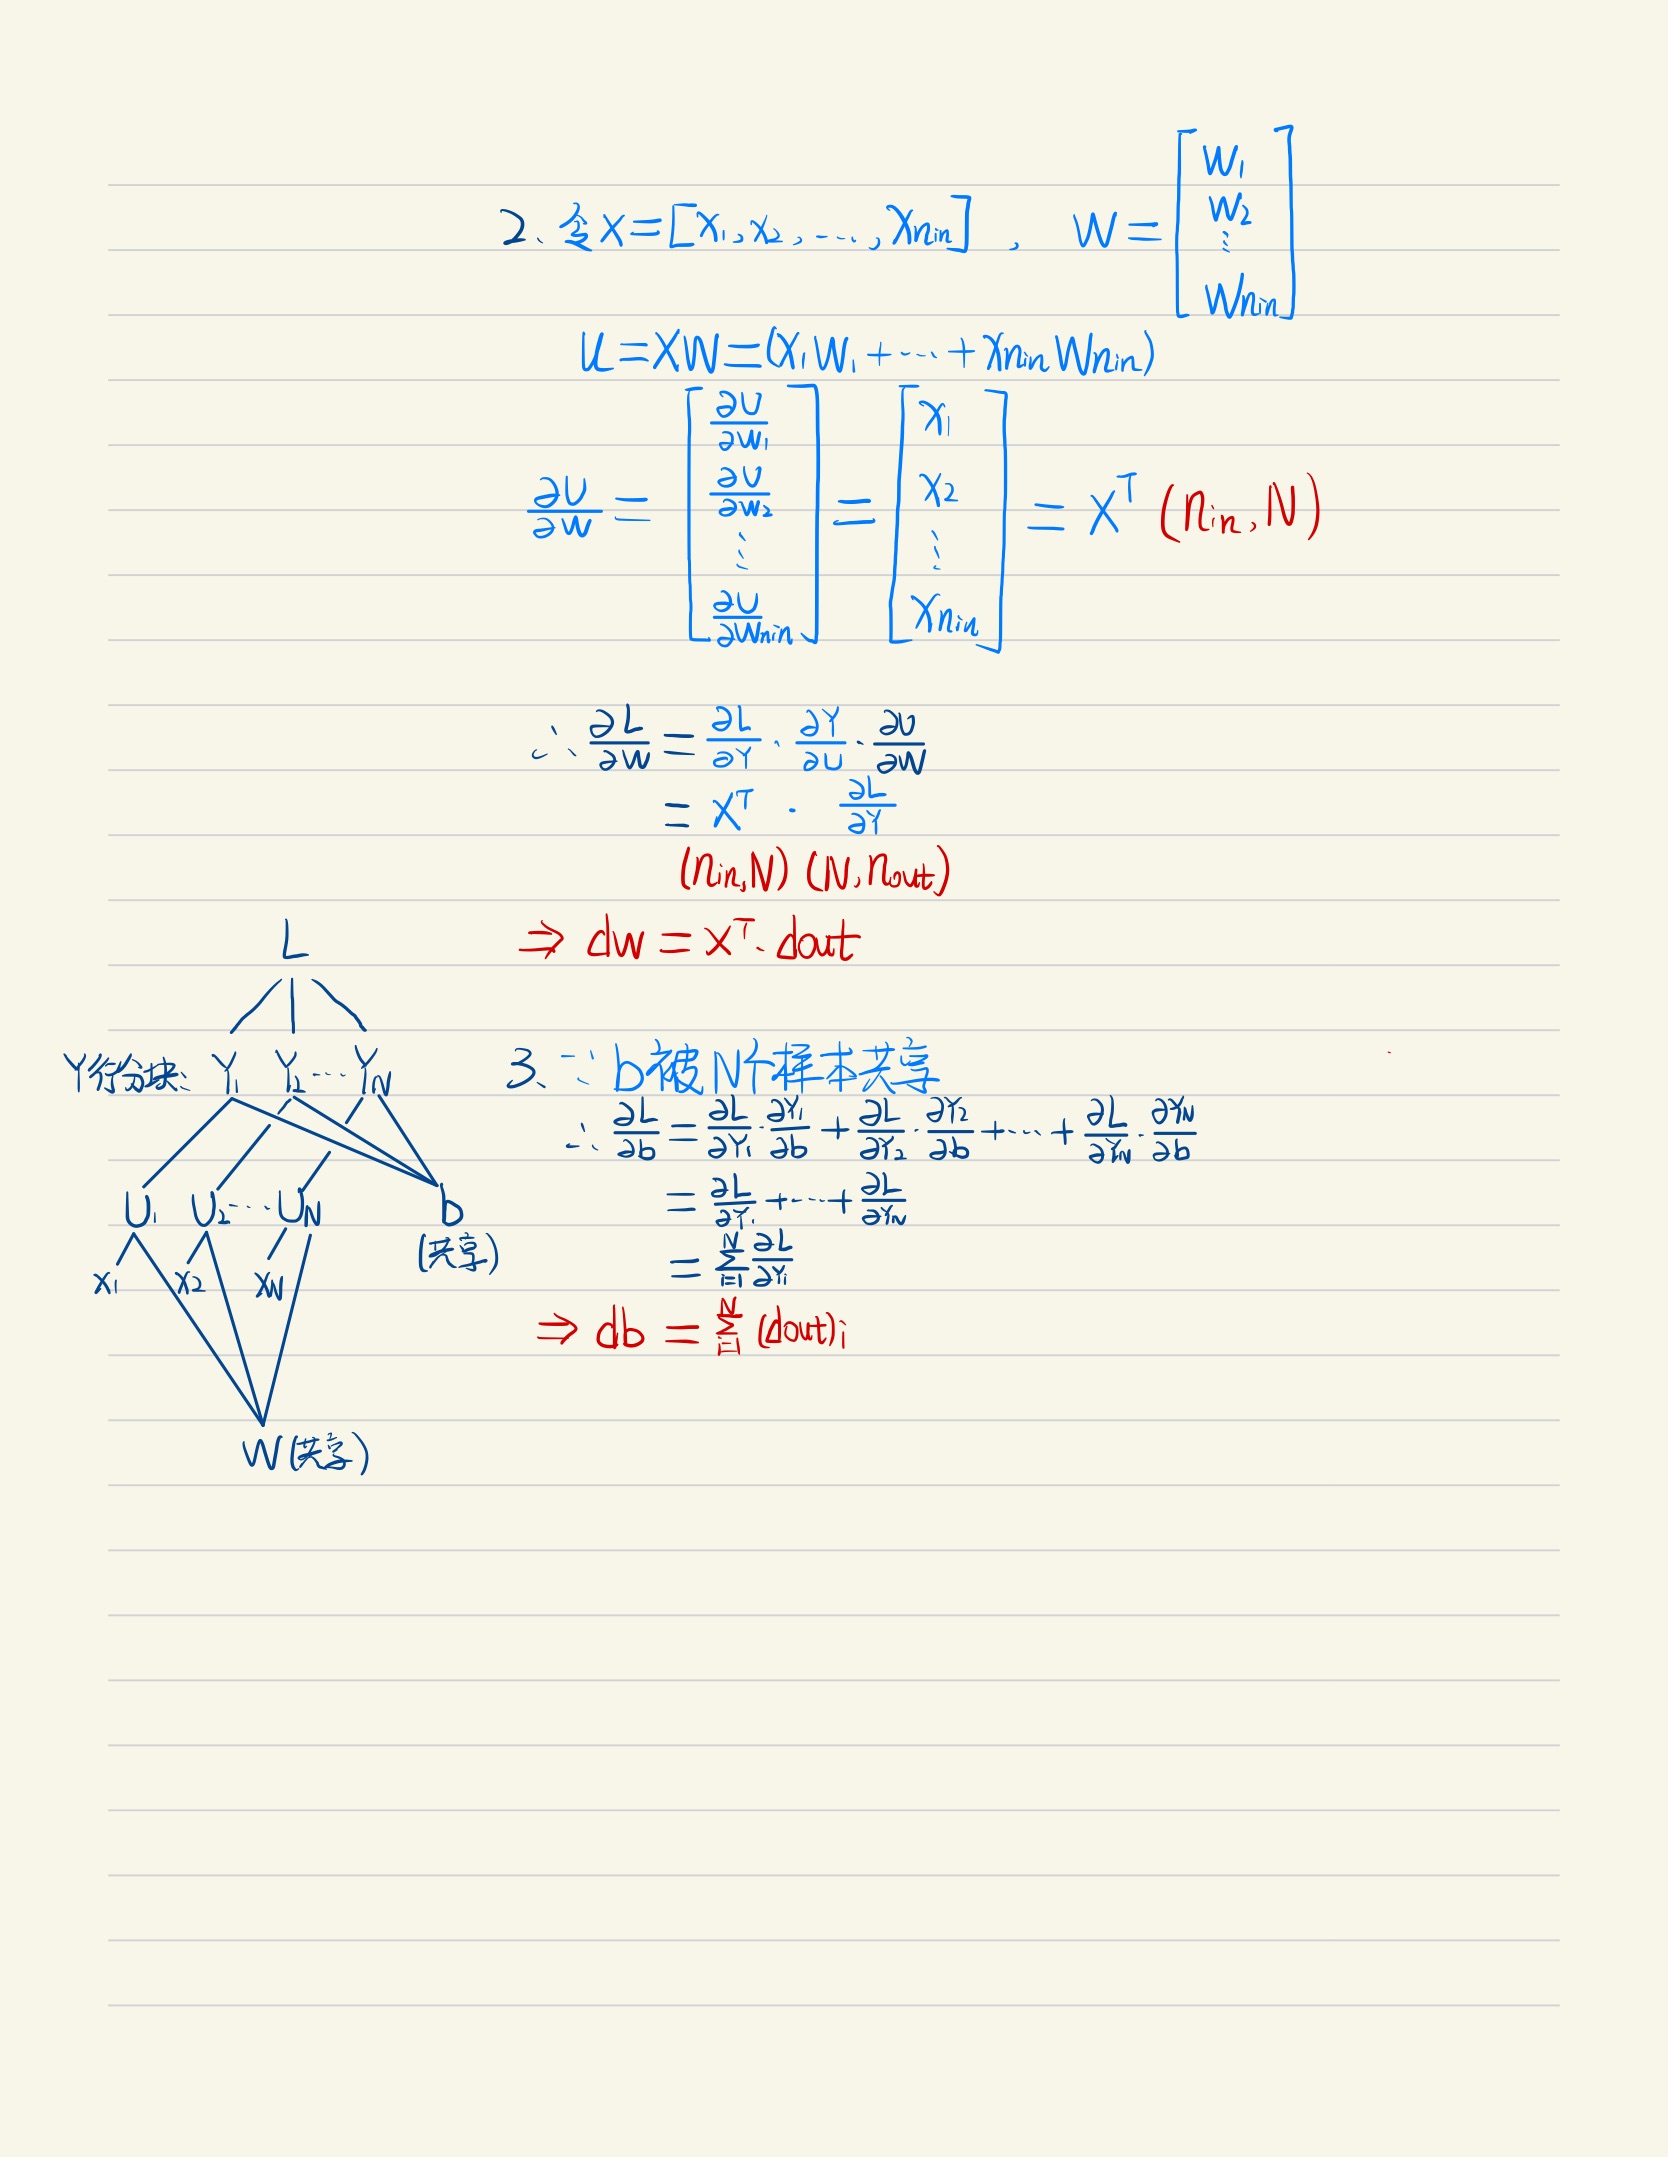 2、令X=[x₁,x₂,...,xₙᵢₙ], W=[W₁ W₂ ⋮ Wₙᵢₙ]
U=XW=(x₁W₁+...+xₙᵢₙWₙᵢₙ)
∂U/∂W=[∂U/∂W₁ ∂U/∂W₂ ⋮ ∂U/∂Wₙᵢₙ]=[x₁ x₂ ⋮ xₙᵢₙ]=Xᵀ (nᵢₙ,N)
∴ ∂L/∂W=∂L/∂Y·∂Y/∂U·∂U/∂W
=Xᵀ·∂L/∂Y
(nᵢₙ,N)(N,nₒᵤₜ)
⇒ dW=Xᵀ·dout
L
Y行分块: Y₁ Y₂...Y_N
U₁ U₂...U_N b
(共享)
x₁ x₂ x_N
W(共享)
3、∵b被N个样本共享
∴ ∂L/∂b=∂L/∂Y₁·∂Y₁/∂b+∂L/∂Y₂·∂Y₂/∂b+...+∂L/∂Y_N·∂Y_N/∂b
=∂L/∂Y₁+...+∂L/∂Y_N
=∑ᵢ₌₁ᴺ ∂L/∂Yᵢ
⇒ db=∑ᵢ₌₁ᴺ (dout)ᵢ